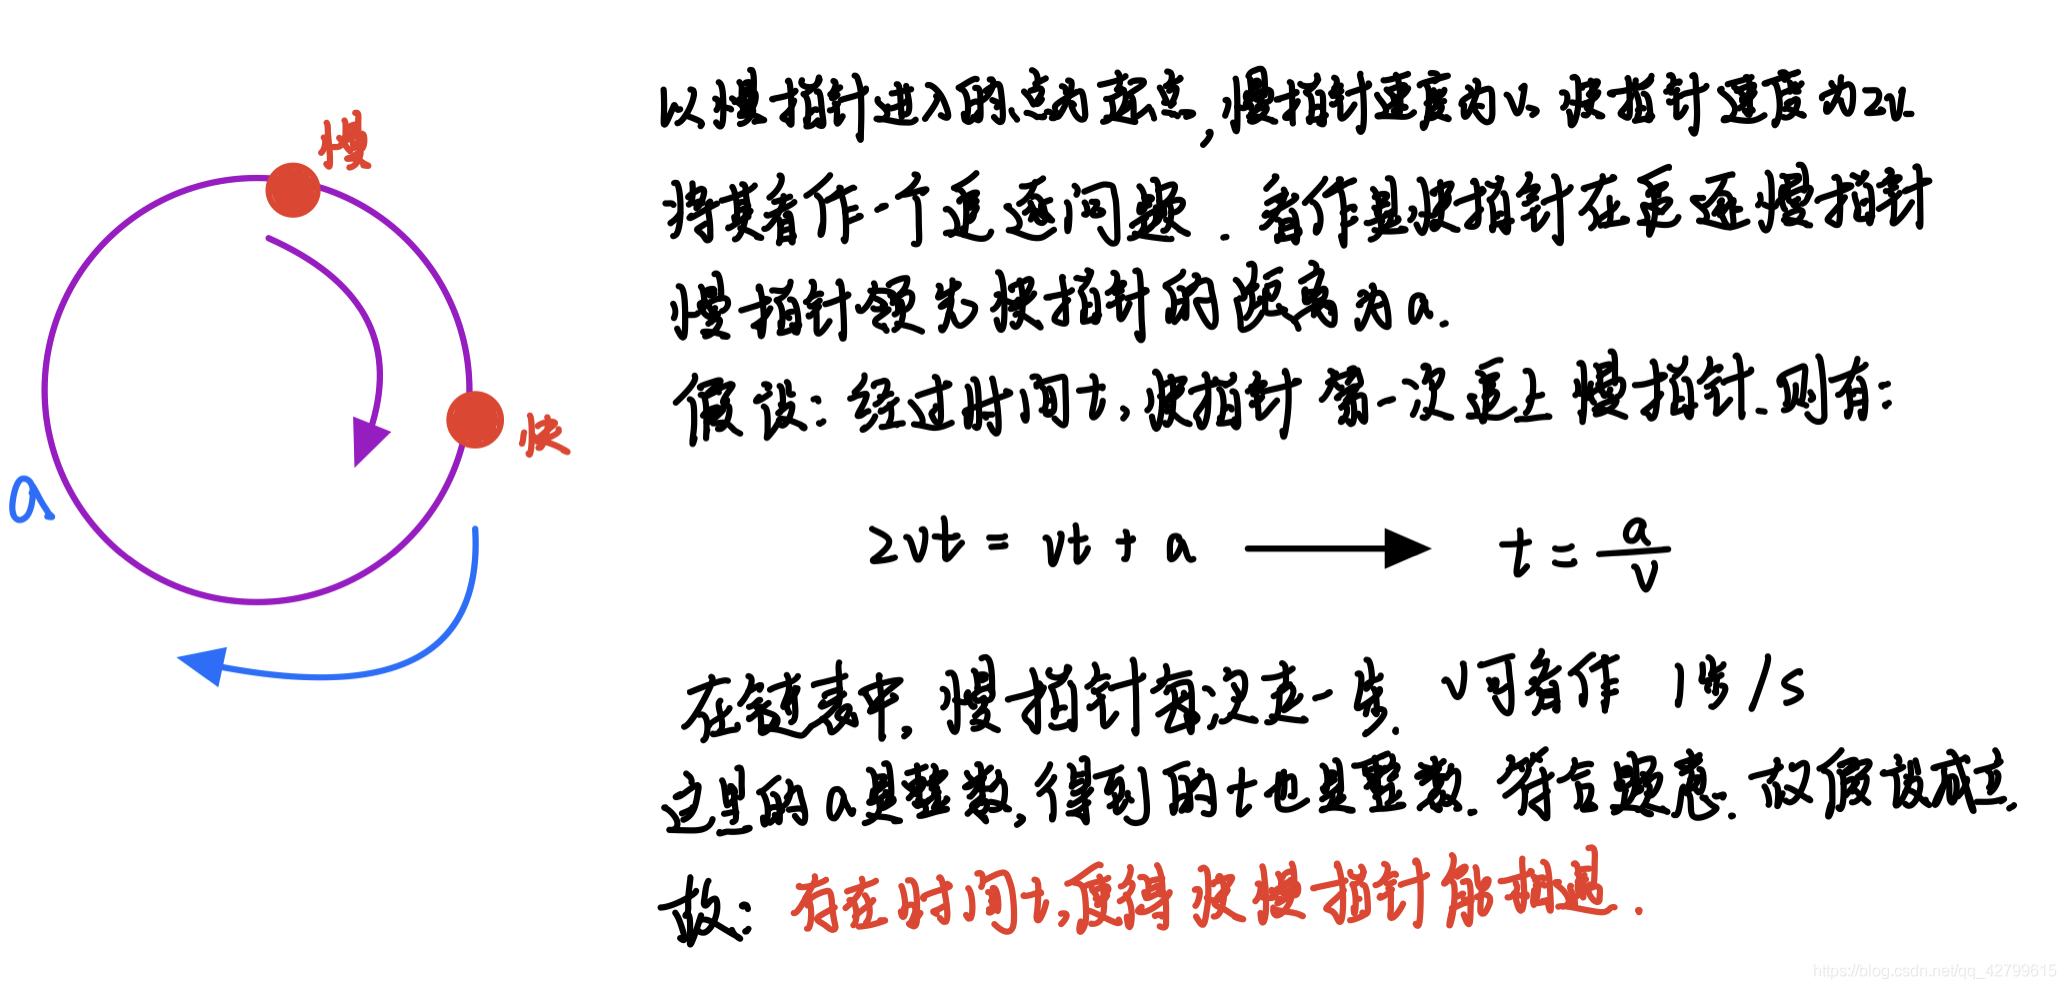 慢
快
a
以慢指针进入的点为起点,慢指针速度为v、快指针速度为2v.
将其看作一个追逐问题.看作是快指针在追逐慢指针
慢指针领先快指针的距离为a.
假设:经过时间t,快指针第一次追上慢指针.则有:
2vt = vt + a → t = a/v
在链表中,慢指针每次走一步.v可看作 1步/s
这里的a是整数,得到的t也是整数.符合题意.故假设成立.
故:存在时间t,使得快慢指针能相遇.
https://blog.csdn.net/qq_42799615